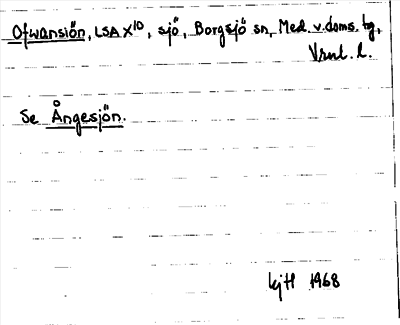 Ofwansiön, LSA X10, sjö, Borgsjö sn, Med. v. doms. tg,
Vrnl. l.
Se Ångesjön.
kjtl 1968